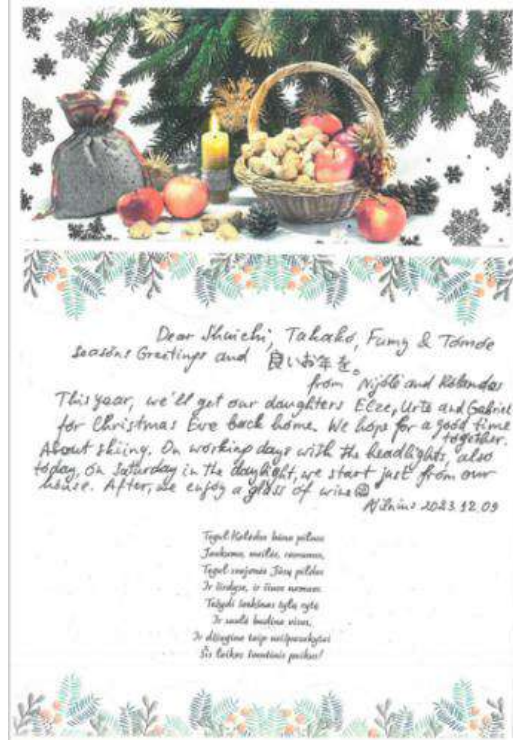 Dear Shuichi, Takako, Fumy & Tomoe
Seasons Greetings and 良いお年を。
from Nijolė and Rolandas
This year, we'll get our daughters Elze, Urtė and Gabrielė
for Christmas Eve back home. We hope for a good time
together.
About skiing. On working days with the headlights, also
today, on Saturday in the daylight, we start just from our
house. After, we enjoy a glass of wine
Vilnius 2023.12.09
Tegul Kalėdos būna pilnos
Jaukumo, meilės, ramumos,
Tegul svajonės Jūsų pildos
Ir širdyse, ir šiuos namuos.
Težydi
Ir saulė budina visus,
Ir džiugina taip neišpasakytai
Šis laikas šventinis puikus!